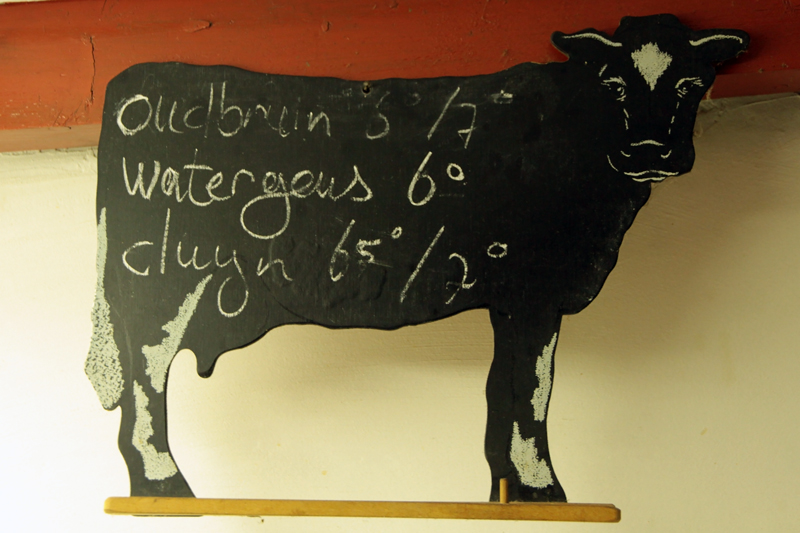 Oudbruin 6° /7°
Watergeus 6°
cluyn 65° /2°